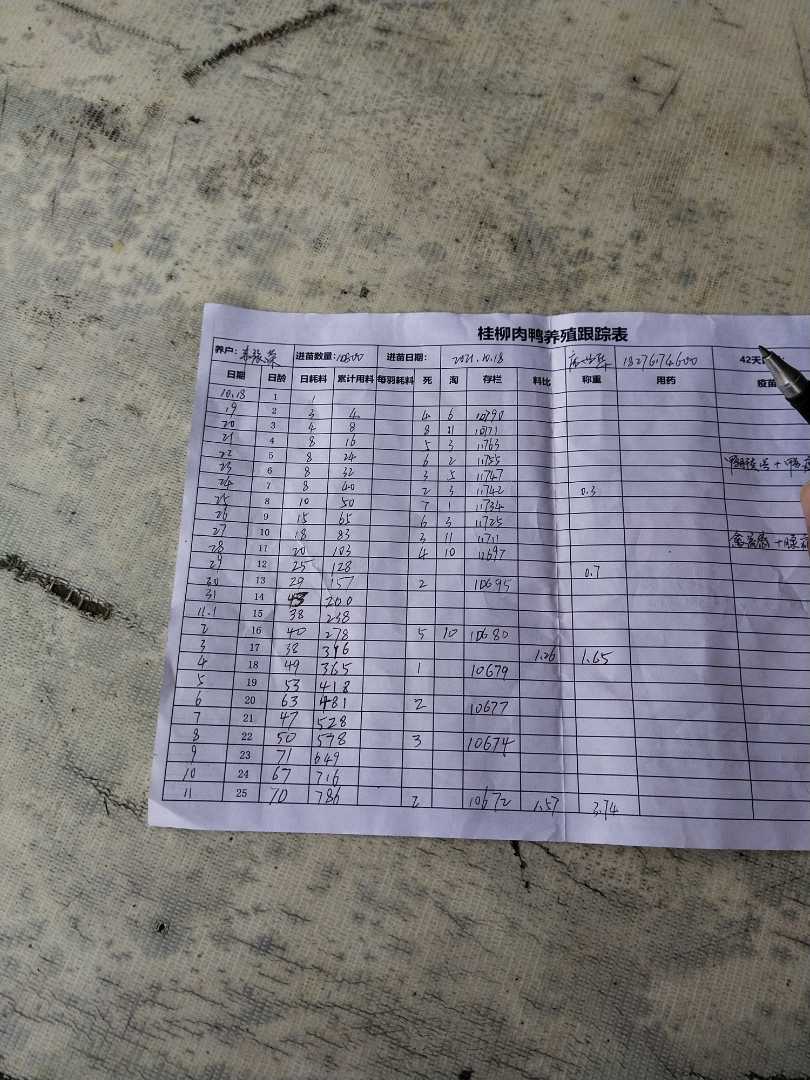 桂柳肉鸭养殖跟踪表
养户： 进苗数量：10800 进苗日期： 2021.10.18 18276174600 42天
日期 日龄 日耗料 累计用料 每羽耗料 死 淘 存栏 料比 称重 用药 疫苗
10.18 1 1
19 2 3 4 4 6 10790
20 3 4 8 8 11 10771
21 4 8 16 5 3 11763
22 5 8 24 6 2 11755
23 6 8 32 3 5 11747
24 7 8 40 2 3 11742 0.3
25 8 10 50 7 1 11734
26 9 15 65 6 3 11725
27 10 18 83 3 11 11711
28 11 20 103 4 10 11697
29 12 25 128 0.7
30 13 29 157 2 10695
31 14 43 200
11.1 15 38 238
2 16 40 278 5 10 10680
3 17 38 316 1.26 1.65
4 18 49 365 1 10679
5 19 53 418
6 20 63 481 2 10677
7 21 47 528
8 22 50 578 3 10674
9 23 71 649
10 24 67 716
11 25 70 786 2 10672 1.57 3.74